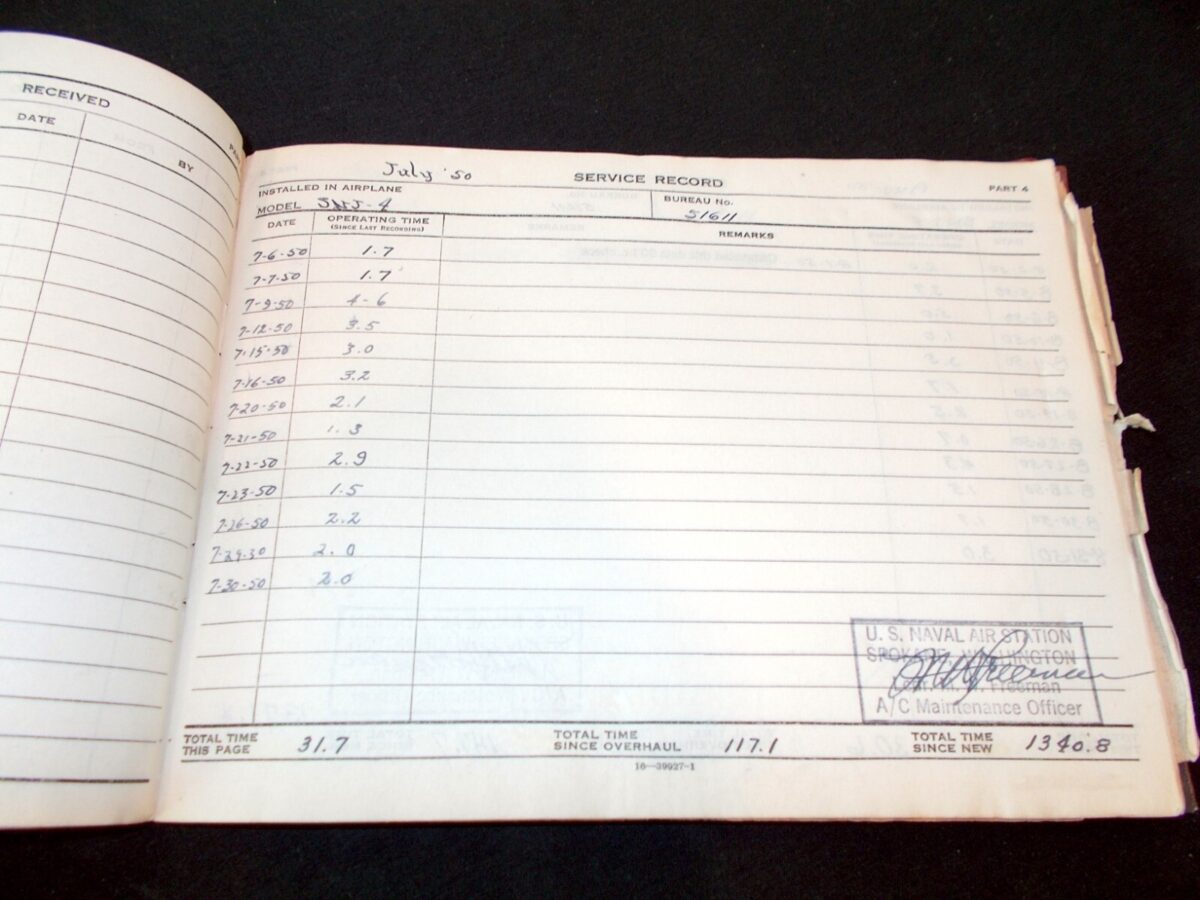 RECEIVED
DATE
BY
July '50
SERVICE RECORD
PART 4
INSTALLED IN AIRPLANE
MODEL SNJ-4
BUREAU No.
51611
DATE
OPERATING TIME
(SINCE LAST RECORDING)
REMARKS
7-6-50 1.7
7-7-50 1.7
7-9-50 4-6
7-12-50 3.5
7-15-50 3.0
7-16-50 3.2
7-20-50 2.1
7-21-50 1.3
7-22-50 2.9
7-23-50 1.5
7-26-50 2.2
7-29-50 2.0
7-30-50 2.0
U. S. NAVAL AIR STATION
SPOKANE, WASHINGTON
Freeman
A/C Maintenance Officer
TOTAL TIME
THIS PAGE 31.7
TOTAL TIME
SINCE OVERHAUL 117.1
TOTAL TIME
SINCE NEW 1340.8
16—39927-1